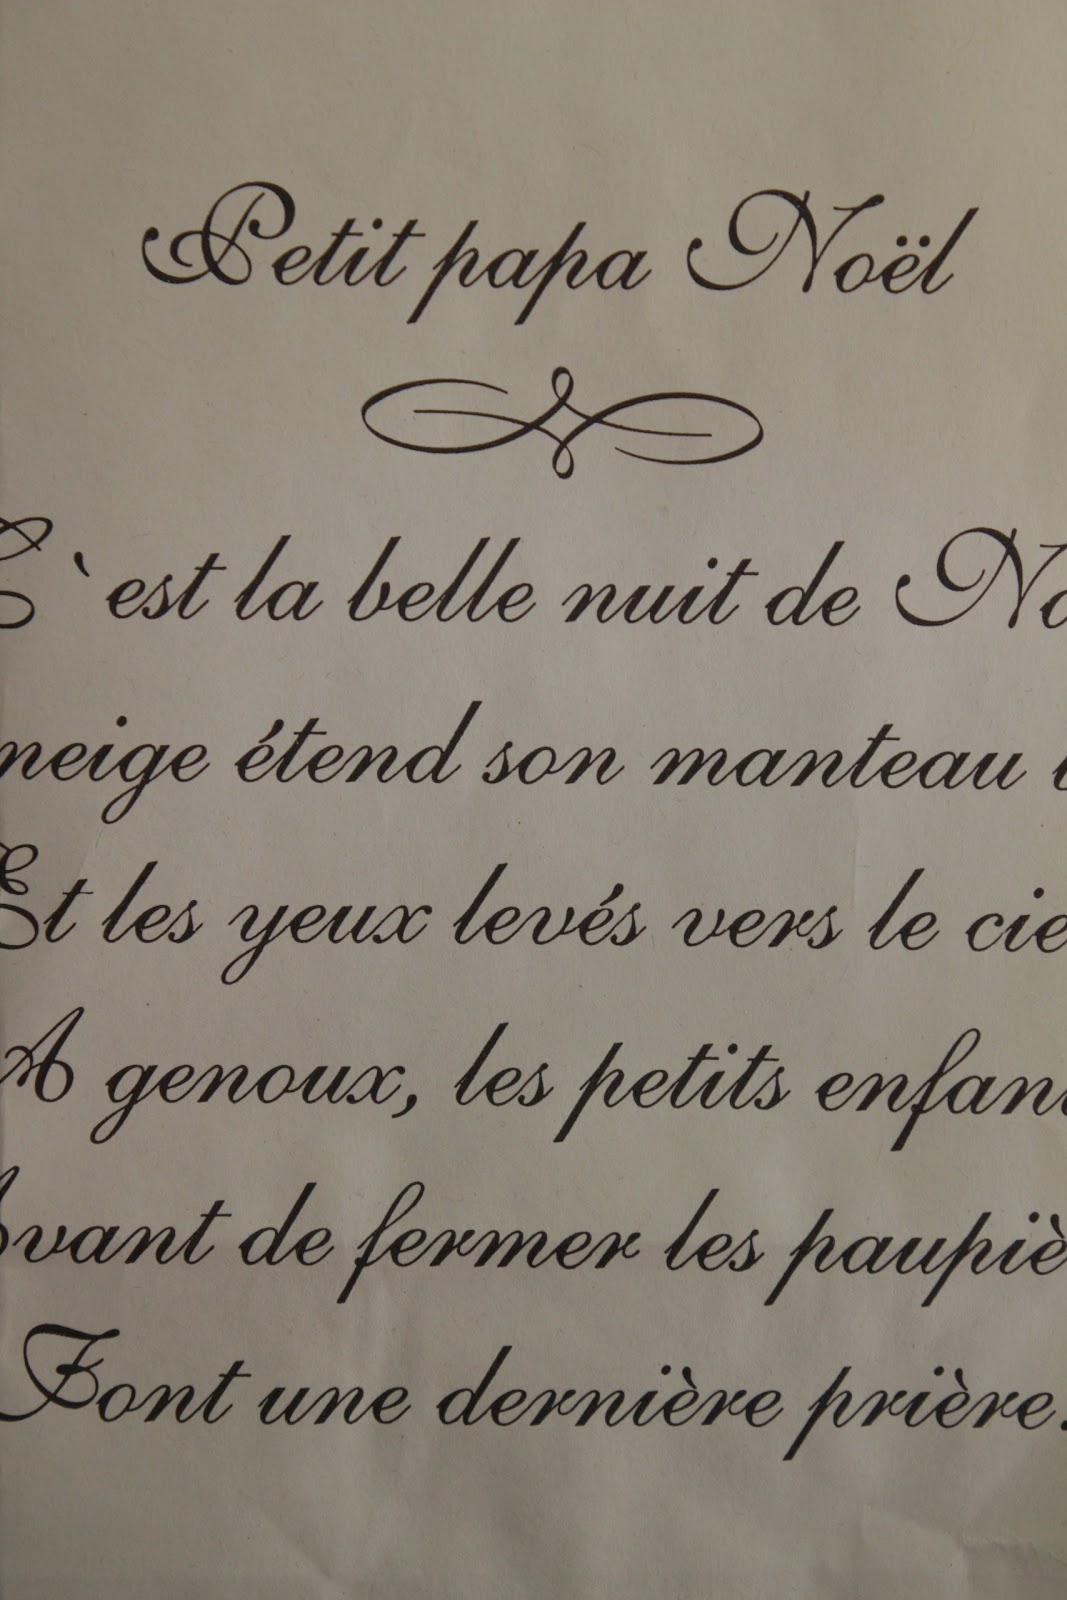 Petit papa Noël
C`est la belle nuit de No
neige étend son manteau
Et les yeux levés vers le cie
A genoux, les petits enfan
Avant de fermer les paupiè
Font une dernière prière.